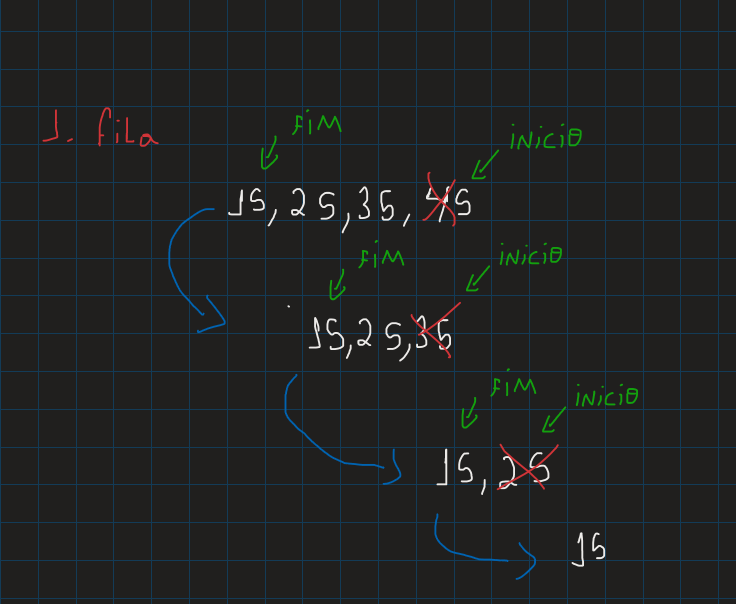 1. fila
FiM
iNiCiO
15, 25, 35, 45
FiM
iNiCiO
15, 25, 35
FiM
iNiCiO
15, 25
15